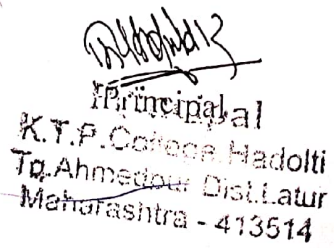 Principal
K.T.P. College Hadolti
Tq. Ahmedpur Dist. Latur
Maharashtra - 413514